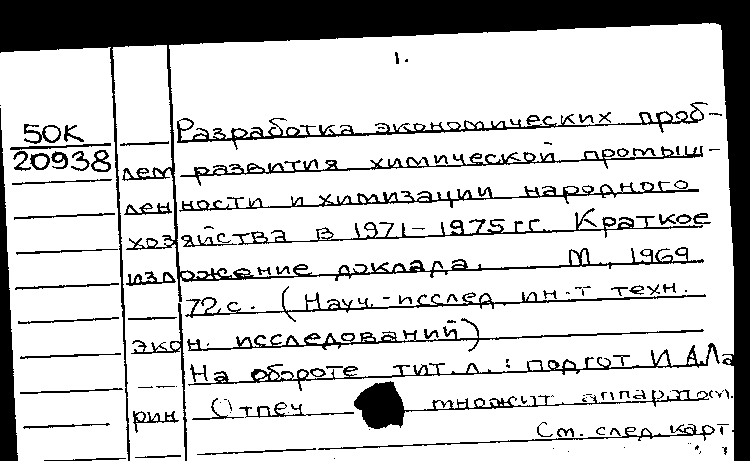 1.
50К
20938
Разработка экономических проб-
лем развития химической промыш-
ленности и химизации народного
хозяйства в 1971-1975 гг. Краткое
изложение доклада. М., 1969
72 с. (Науч.-исслед. ин-т техн.
экон. исследований)
На обороте тит. л.: подгот. И.А.Ла
рин Отпеч множит. аппаратом.
См. след. карт.